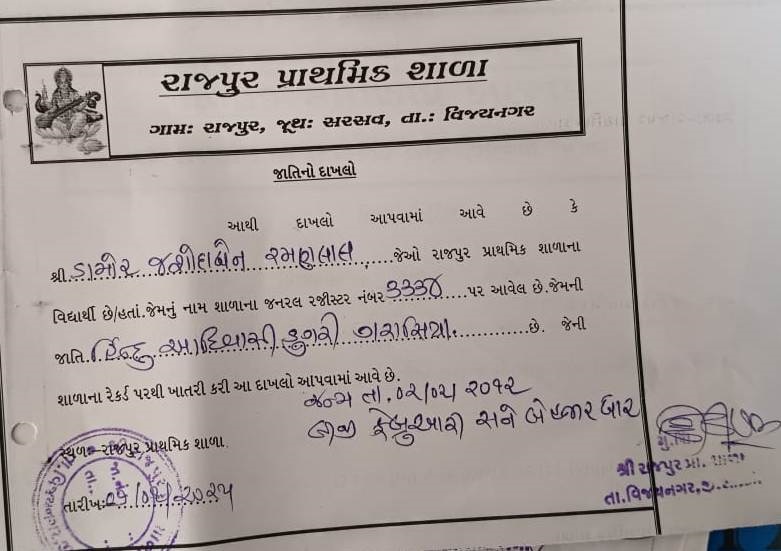 રાજપુર પ્રાથમિક શાળા
ગામઃ રાજપુર, જૂથઃ સરસવ, તા.: વિજયનગર
જાતિનો દાખલો
આથી દાખલો આપવામાં આવે છે કે
શ્રી. ડામોર જશોદાબેન રમણલાલ જેઓ રાજપુર પ્રાથમિક શાળાના
વિદ્યાર્થી છે/હતાં.જેમનું નામ શાળાના જનરલ રજીસ્ટર નંબર 3334 પર આવેલ છે.જેમની
જાતિ. હિન્દુ આદિવાસી ડુંગરી ગરાસિયા. છે. જેની
શાળાના રેકર્ડ પરથી ખાતરી કરી આ દાખલો આપવામાં આવે છે.
જન્મ તા. ૦૨/૦૨/ ૨૦૧૨
બીજી ફેબ્રુઆરી સને બે હજાર બાર
સ્થળઃ- રાજપુર પ્રાથમિક શાળા.
તારીખઃ ૨૦૨૫
શ્રી રાજપુર પ્રા. શાળા
તા.વિજયનગર,